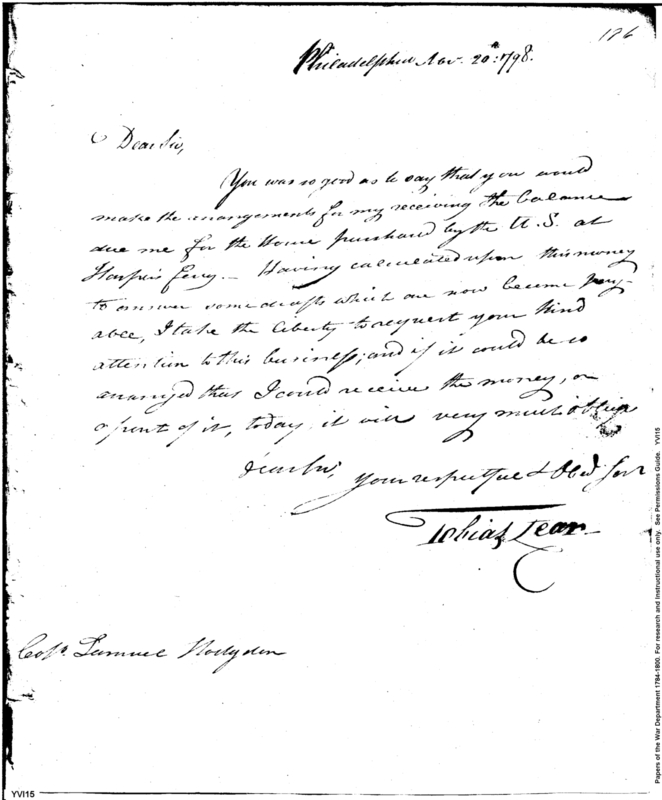 126
Philadelphia Nov. 20th: 1798.
Dear Sir,
You was so good as to say that you would
make the arrangements for my receiving the balance
due me for the House purchased by the U.S. at
Harper's ferry. — Having calculated upon this money
to answer some drafts which are now become pay-
able, I take the liberty to request your kind
attention to this business; and if it could be so
arranged that I could receive the money, or
a part of it, today, it will very much oblige
Dear Sir,
your respectful & Obed. Servt
Tobias Lear
Colo. Samuel Hodgdon
YVI15
Papers of the War Department 1784-1800. For research and instructional use only. See Permissions Guide. YVI15